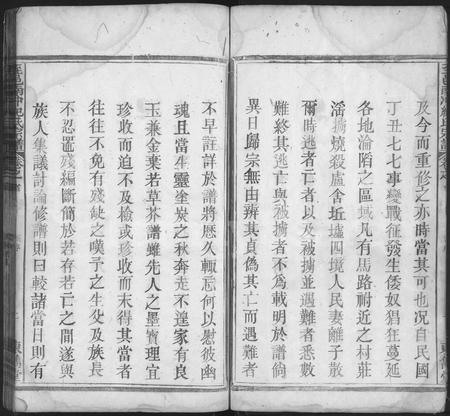 及今而重修之亦時當其可也况自民國
丁丑七七事變戰征發生倭奴猖狂蔓延
各地淪陷之區域凡有馬路附近之村莊
淫擄燒殺廬舍坵墟四境人民妻離子散
爾時逃者亡者以及被擄並遇難者悉數
難終其逃亡與被擄者不為載明於譜倘
異日歸宗無由辨其貞偽其亡而遇難者
不早註詳於譜將歷久輒忘何以慰彼幽
魂且當生靈塗炭之秋奔走不遑家有良
玉兼金棄若草芥譜雖先人之墨寶理宜
珍收而迫不及檢或珍收而未得其當者
比比也不免有殘缺之嘆予之生父及族長
不忍𥳑殘編斷簡於若存若亡之間遂與
族人集議討論修譜則曰較諸當日則有